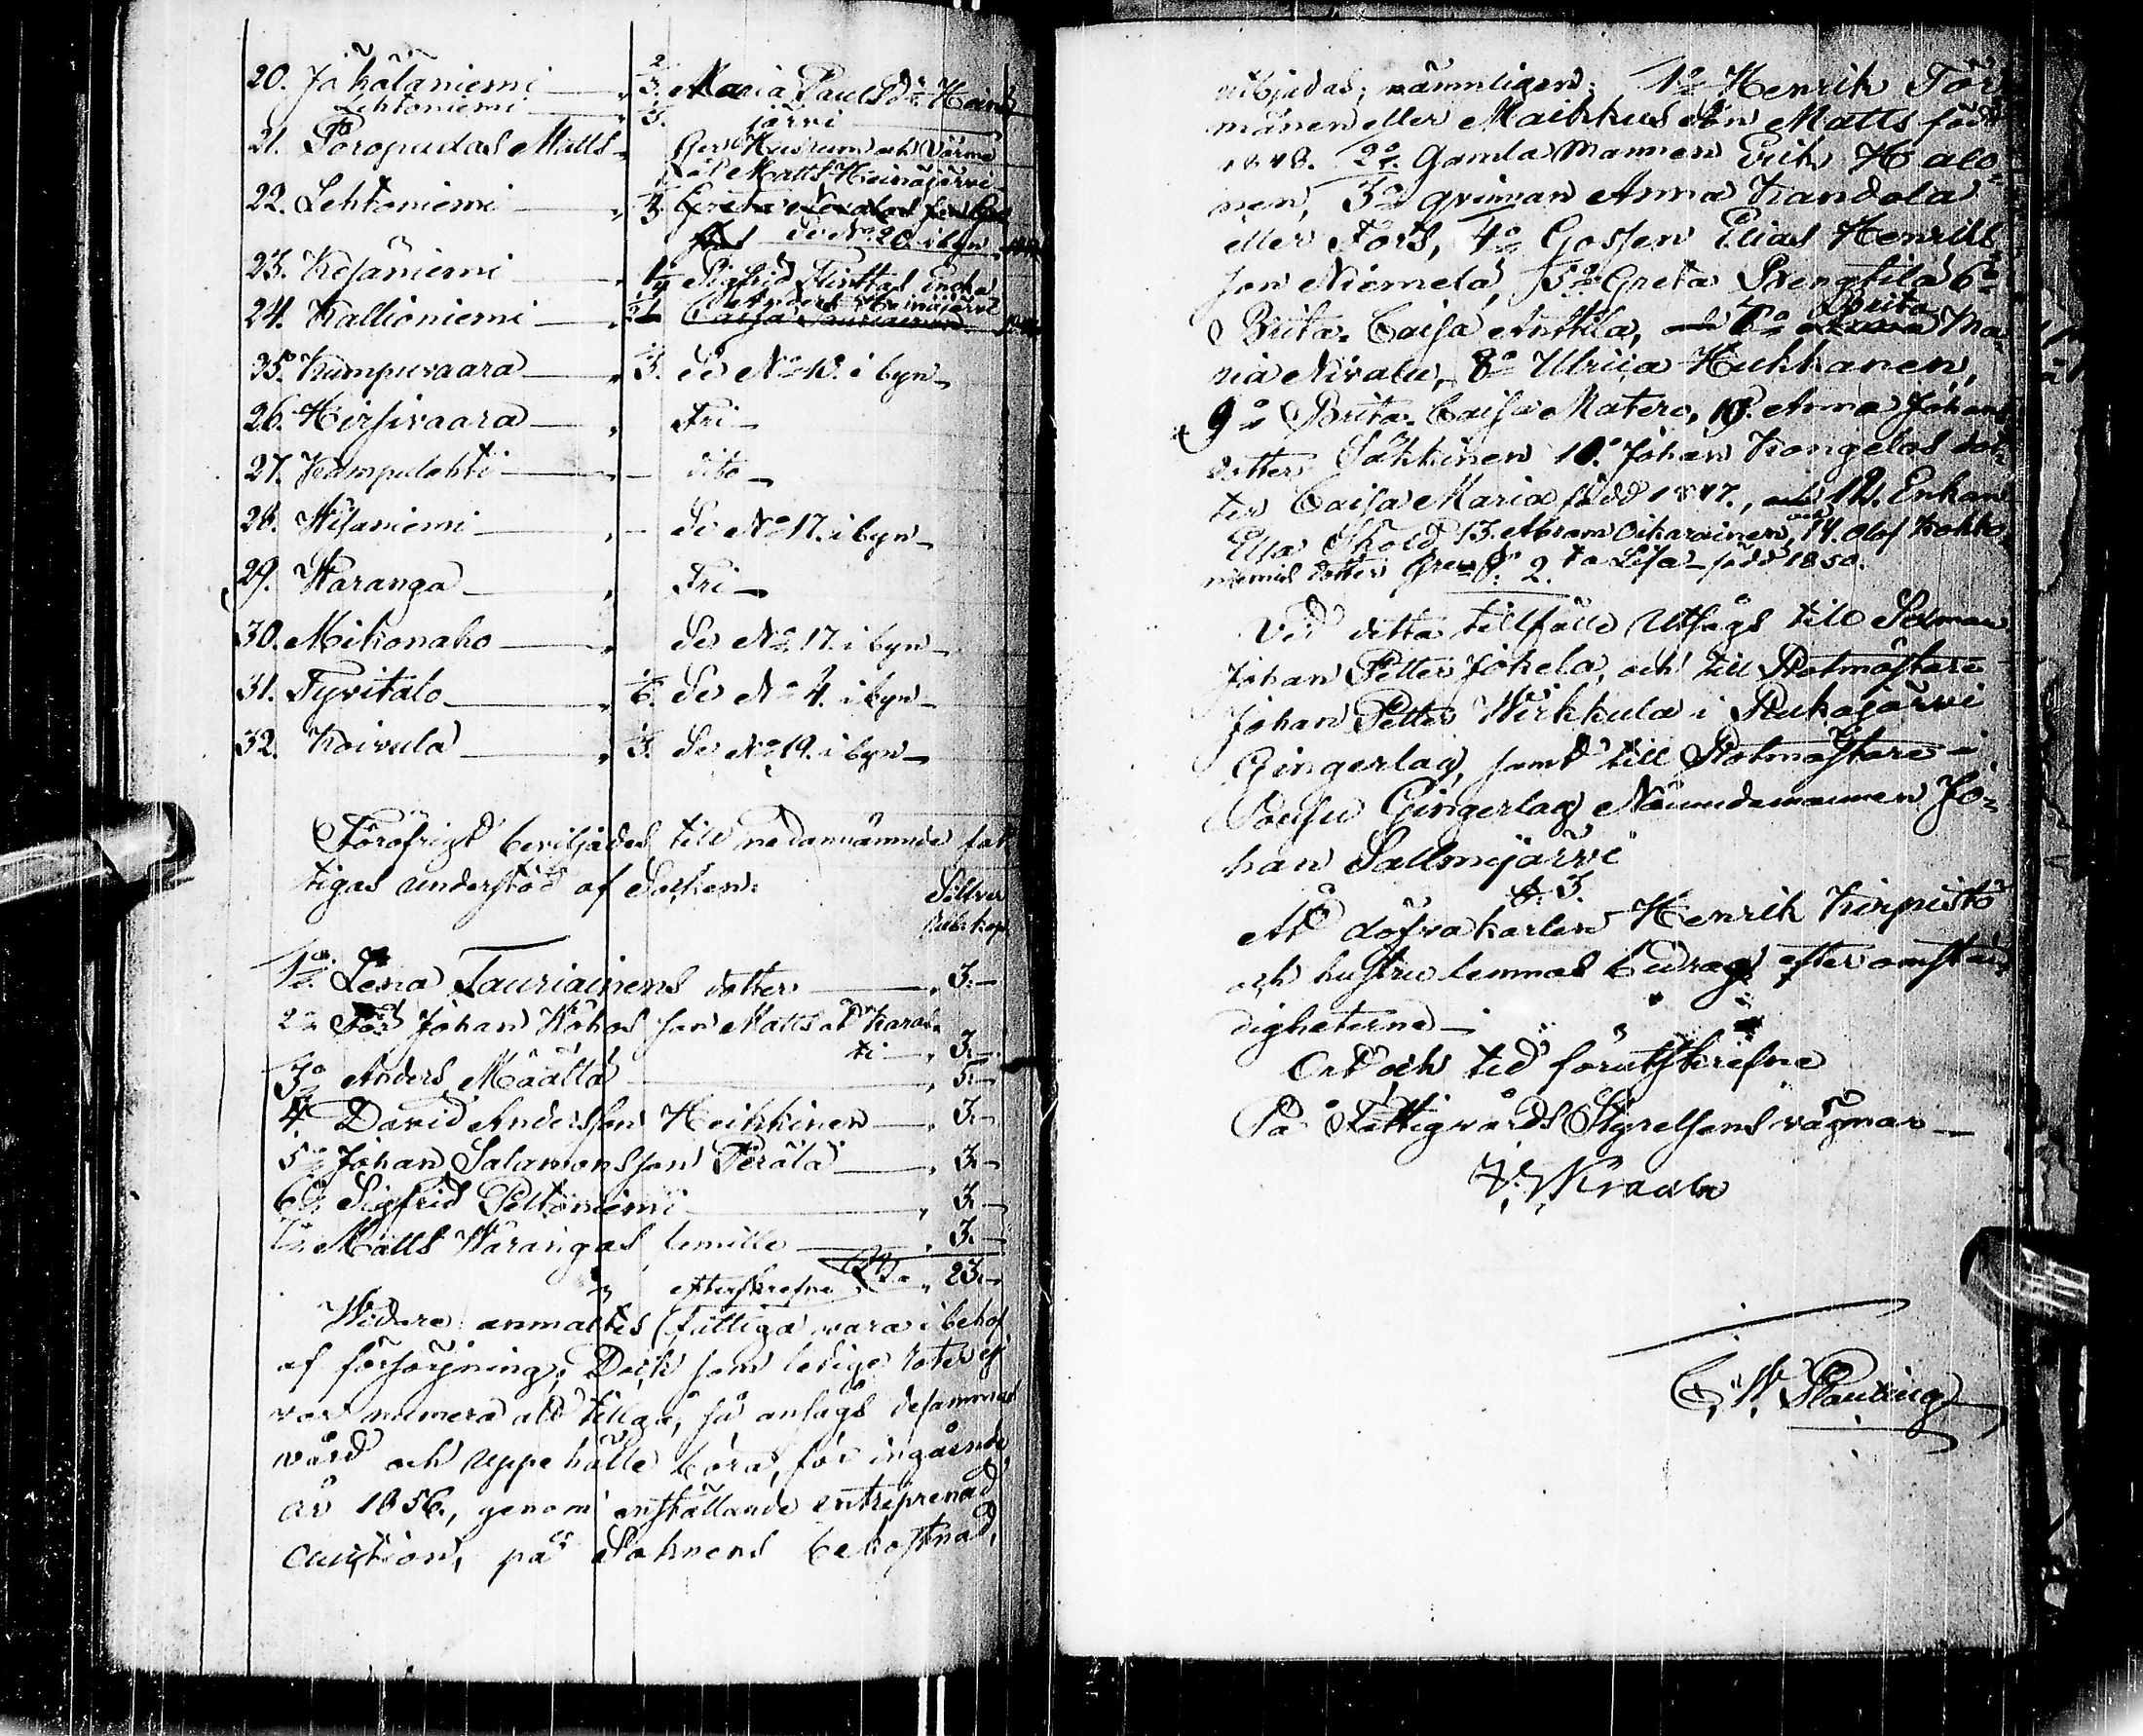 20. Jokölaniemi „ 2/3. Maria Paulsdr Heinä
Lehtoniemi „ 1/3. järvi
21. Poropudas Matts „ ger Husrum och Värme
åt Matts Heinäjärvi
22. Lehtoniemi „ 1/3. Greta
Se No 20 i byn
23. Kesäniemi „ 1/4 Sigfrid Flinttas Enka
24. Kallioniemi „ 1/21 Anders Heinäjärvi
Caisa Tauriainen
25. Kumpuvaara „ 1/3. Se No 10. i byn
26. Hirsivaara „ Fri
27. Kumpulehti dito
28. Wisaniemi Se No 17. i byn
29. Waranga „ Fri
30. Mikonaho „ Se No 17. i byn
31. Tyvitalo „ 1/6. Se No 4. i byn
32. Koivula „ 1/3. Se No 19. i byn
Föröfrigt beviljades till nedannämnde fat
tigas understöd af Socken:
Silfver
Rub. kop.
1o. Lena Tauriainens dotter „ 3.-
2o För Johan Kohos son Matts åt Karah
ti „ 3.-
3o Anders Määttä „ 5.-
4. David Andersson Heikkinen „ 3.-
5o Johan Salamonsson Perälä „ 3.-
6o Sigfrid Peltoniemi „ 3.-
7o Matts Warangas „ 3.-
„ 23.-
efterskrefne
Widare anmältes fattiga vara i behof
af försörjning; Dock som ledige roter ej
var numera att tillgå, så ansågs desammas
vård och uppehälle böra, för ingående
år 1856., genom anställande entreprenad
auction, på Soknens bekostnad,
utbjudas; nämnligen: 1o Henrik Tör
mänen eller Maikkus Son Matts född
1848. 2o. Gamla Mannen Erik Halo-
nen, 3o qvinnan Anna Kandola
eller Fors, 4o Gossen Elias Henriks
son Niemelä, 5o Greta Pengtilä 6o
Brita Caisa Anttila, 7o Brita Ma-
ria Nivalu, 8o Ulrica Hukkanen,
9o Brita Caisa Matero, 10. Anna Johans
dotter Säkkinen 10. Johan Kongelas dot-
ter Caisa Maria född 1847., 12. Enkan
Elsa Sköld 13. Abram Oikarainen, och 14. Olof Kokko-
niemis dotter Greta Lisa född 1850.
§. 2.
Vid detta tillfälle Utsågs till Sexman
Johan Petter Jokela, och till Rotmästare
Johan Petter Wirkkula i Rukajärvi
Gingerlag, samt till Rotmästare i
Posisu Gingerlag Nämndemannen Jo-
han Sallmijärvi
§. 3.
At döfva karlen Henrik Kinnisto
och hustru lemnas bidrag efter omstän
digheterne
Ort och tid förutskrefne
På Fattigvårds Styrelsens vägnar